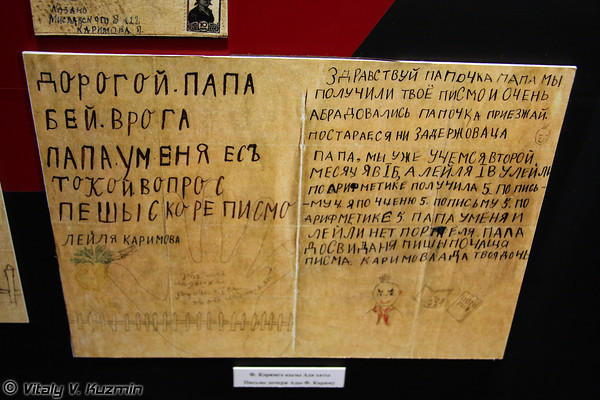 Казань
Миславского 8 кв 22
Каримова Я.
ДОРОГОЙ. ПАПА
БЕЙ. ВРОГА
ПАПА УМЕНЯ ЕСЪ
ТОКОЙ ВОПРОС
ПЕШЫ СКОРЕ ПИСМО
ЛЕЙЛЯ КАРИМОВА
ЗДРАВСТВУЙ ПАПОЧКА ПАПА МЫ
ПОЛУЧИЛИ ТВОЁ ПИСМО И ОЧЕНЬ
АБРАДОВАЛИСЬ ПАПОЧКА ПРИЕЗЖАЙ.
ПОСТАРАЕСЯ НИ ЗАДЕРЖОВАЦА
ПАПА, МЫ УЖЕ УЧЕМСЯ ВТОРОЙ
МЕСЯЦ Я В IБ, А ЛЕЙЛЯ I В У ЛЕЙЛИ
ПО АРИФМЕТИКЕ ПОЛУЧИЛА 5. ПО ПИСЬ-
-МУ 4. Я ПО ЧИЕНЮ 5. ПО ПИСЬМУ 5. ПО
АРИФМЕТИКЕ 5. ПАПА УМЕНЯ И
ЛЕЙЛИ НЕТ ПОРТФЕЛЯ. ПАПА
ДОСВИДАНЯ ПИШЫ ПОЧАЩА
ПИСМА. КАРИМОВА АДА ТВОЯ ДОЧЬ
Ф. Кәримгә кызы Ада хаты
Письмо дочери Ады Ф. Кариму
© Vitaly V. Kuzmin